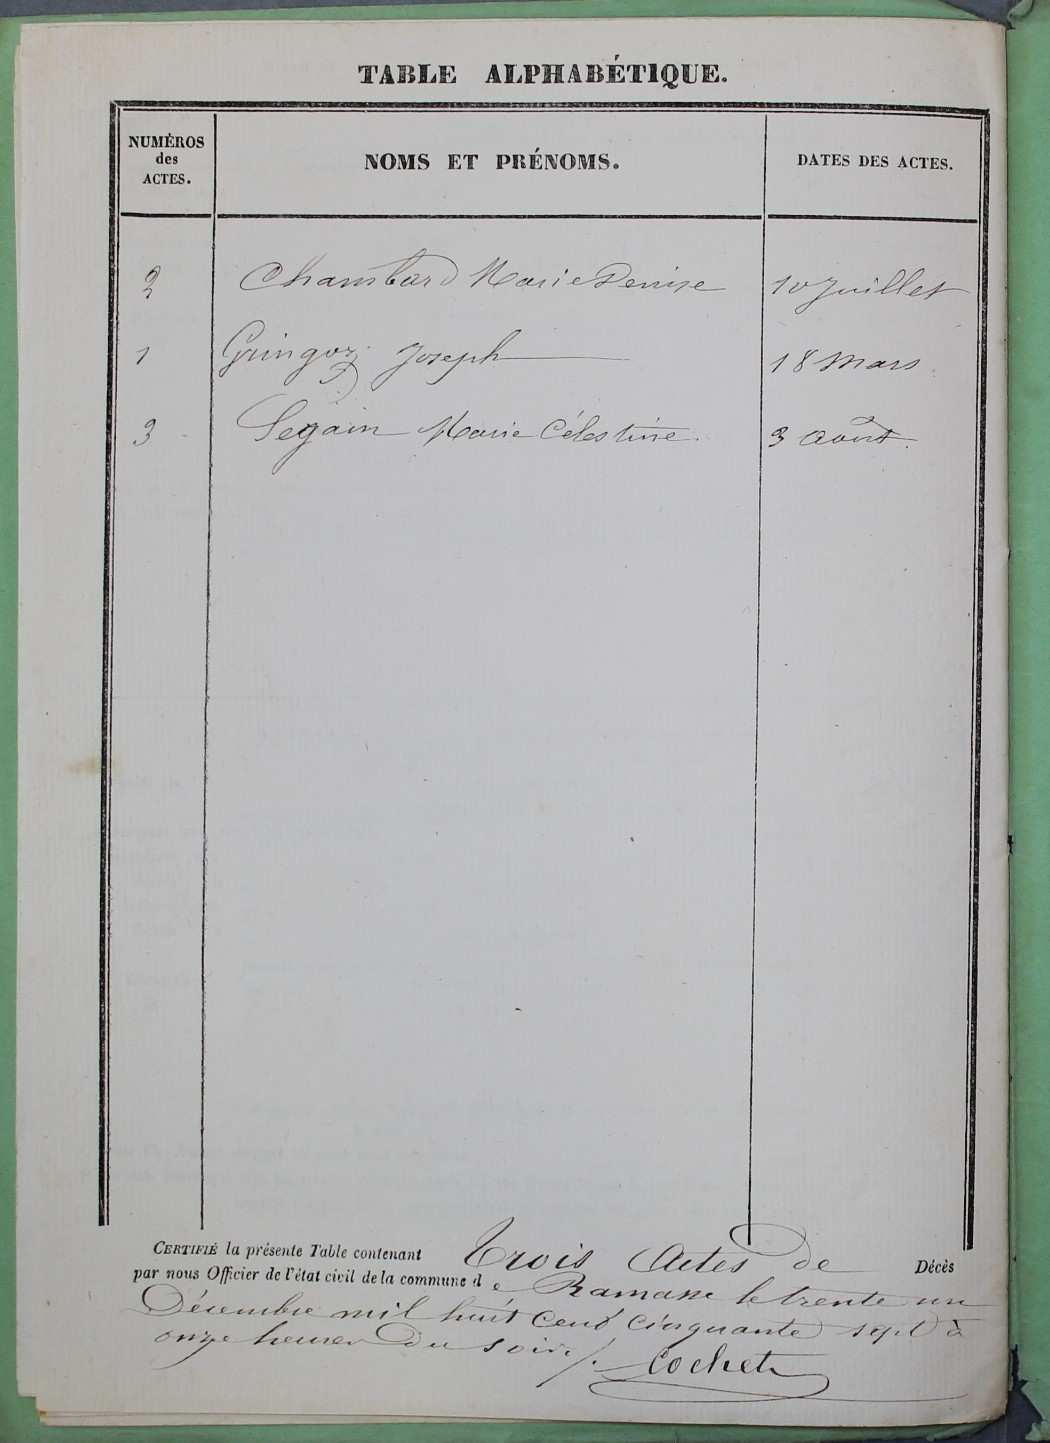 TABLE ALPHABÉTIQUE.
NUMÉROS des ACTES. NOMS ET PRÉNOMS. DATES DES ACTES.
2 Chambard Marie Denise 10 Juillet
1 Gringoz Joseph 18 Mars
3 Segain Marie Célestine 3 Août
CERTIFIÉ la présente Table contenant Trois Actes de Décès
par nous Officier de l'état civil de la commune de Ramasse le trente un
Décembre mil huit cent cinquante sept à
onze heures du soir /. Cochet